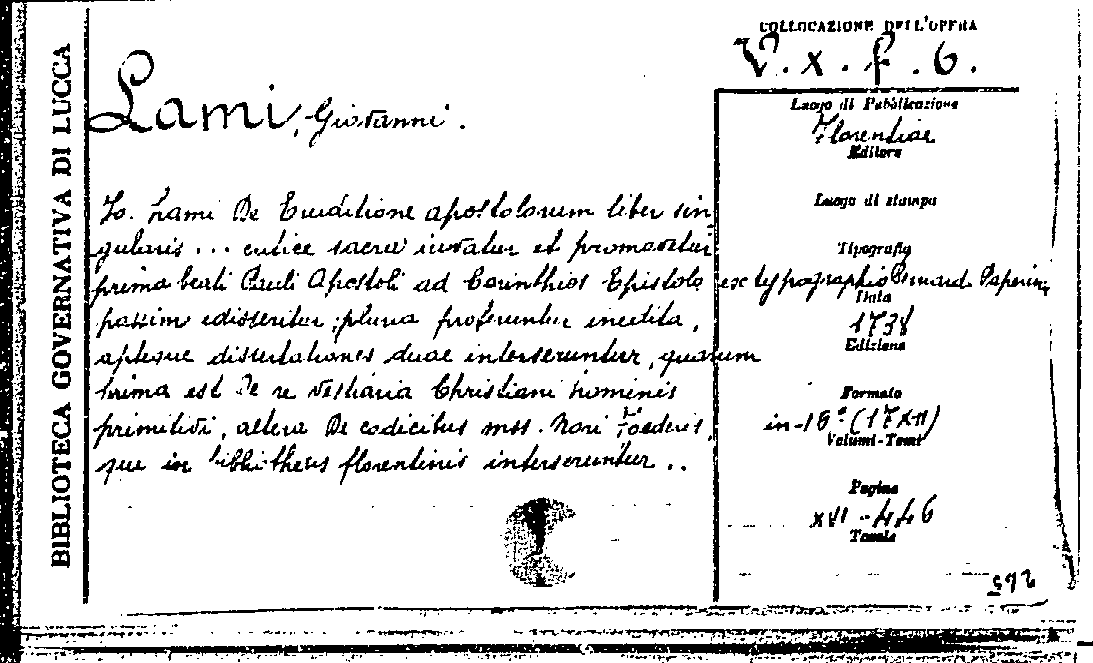 BIBLIOTECA GOVERNATIVA DI LUCCA
COLLOCAZIONE DELL'OPERA
V. x. f. 6.
Lami, Giovanni.
Io. Lami De Eruditione apostolorum liber sin
gularis ... critice sacra iuvatur et promovetur
prima beati Pauli Apostoli ad Corinthios Epistola
passim edisseritur; plura proferuntur inedita,
apteque dissertationes duae interseruntur, quarum
prima est De re vestiaria Christiani hominis
primitivi, altera De codicibus mss. Novi Foederis,
que in bibliothecis florentinis interseruntur ..
Luogo di Pubblicazione
Florentiae
Editore
Luogo di stampa
Tipografia
ex typographio Bernard. Paperini
Data
1738
Edizione
Formato
in-16° (17x11)
Volumi-Tomi
Pagine
XVI-446
Tavole
592